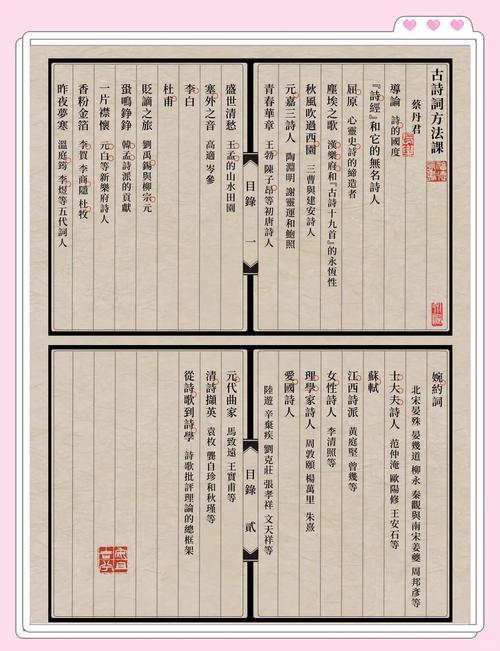 古詩詞方法課
蔡丹君
導論 詩的國度
『詩經』和它的無名詩人
屈原 心靈史詩的締造者
塵埃之歌 漢樂府和『古詩十九首』的永恆性
秋風吹過西園 三曹與建安詩人
元嘉三詩人 陶淵明 謝靈運和鮑照
青春華章 王勃 陳子昂等初唐詩人
目錄 一
盛世清愁 王孟的山水田園
塞外之音 高適 岑參
李白
杜甫
貶謫之旅 劉禹錫與柳宗元
蛩鳴錚錚 韓孟詩派的貢獻
一片襟懷 元白等新樂府詩人
香粉金箔 李賀 李商隱 杜牧
昨夜夢寒 溫庭筠 李煜等五代詞人
婉約詞
北宋晏殊 晏幾道 柳永 秦觀與南宋姜夔 周邦彥等
士大夫詩人 范仲淹 歐陽修 王安石等
蘇軾
江西詩派 黃庭堅 曾幾等
女性詩人 李清照等
理學家詩人 周敦頤 楊萬里 朱熹
愛國詩人
陸遊 辛棄疾 劉克莊 張孝祥 文天祥等
目錄 貳
元代曲家 馬致遠 王實甫等
清詩擷英 袁枚 龔自珍和秋瑾等
從詩歌到詩學 詩歌批評理論的總框架